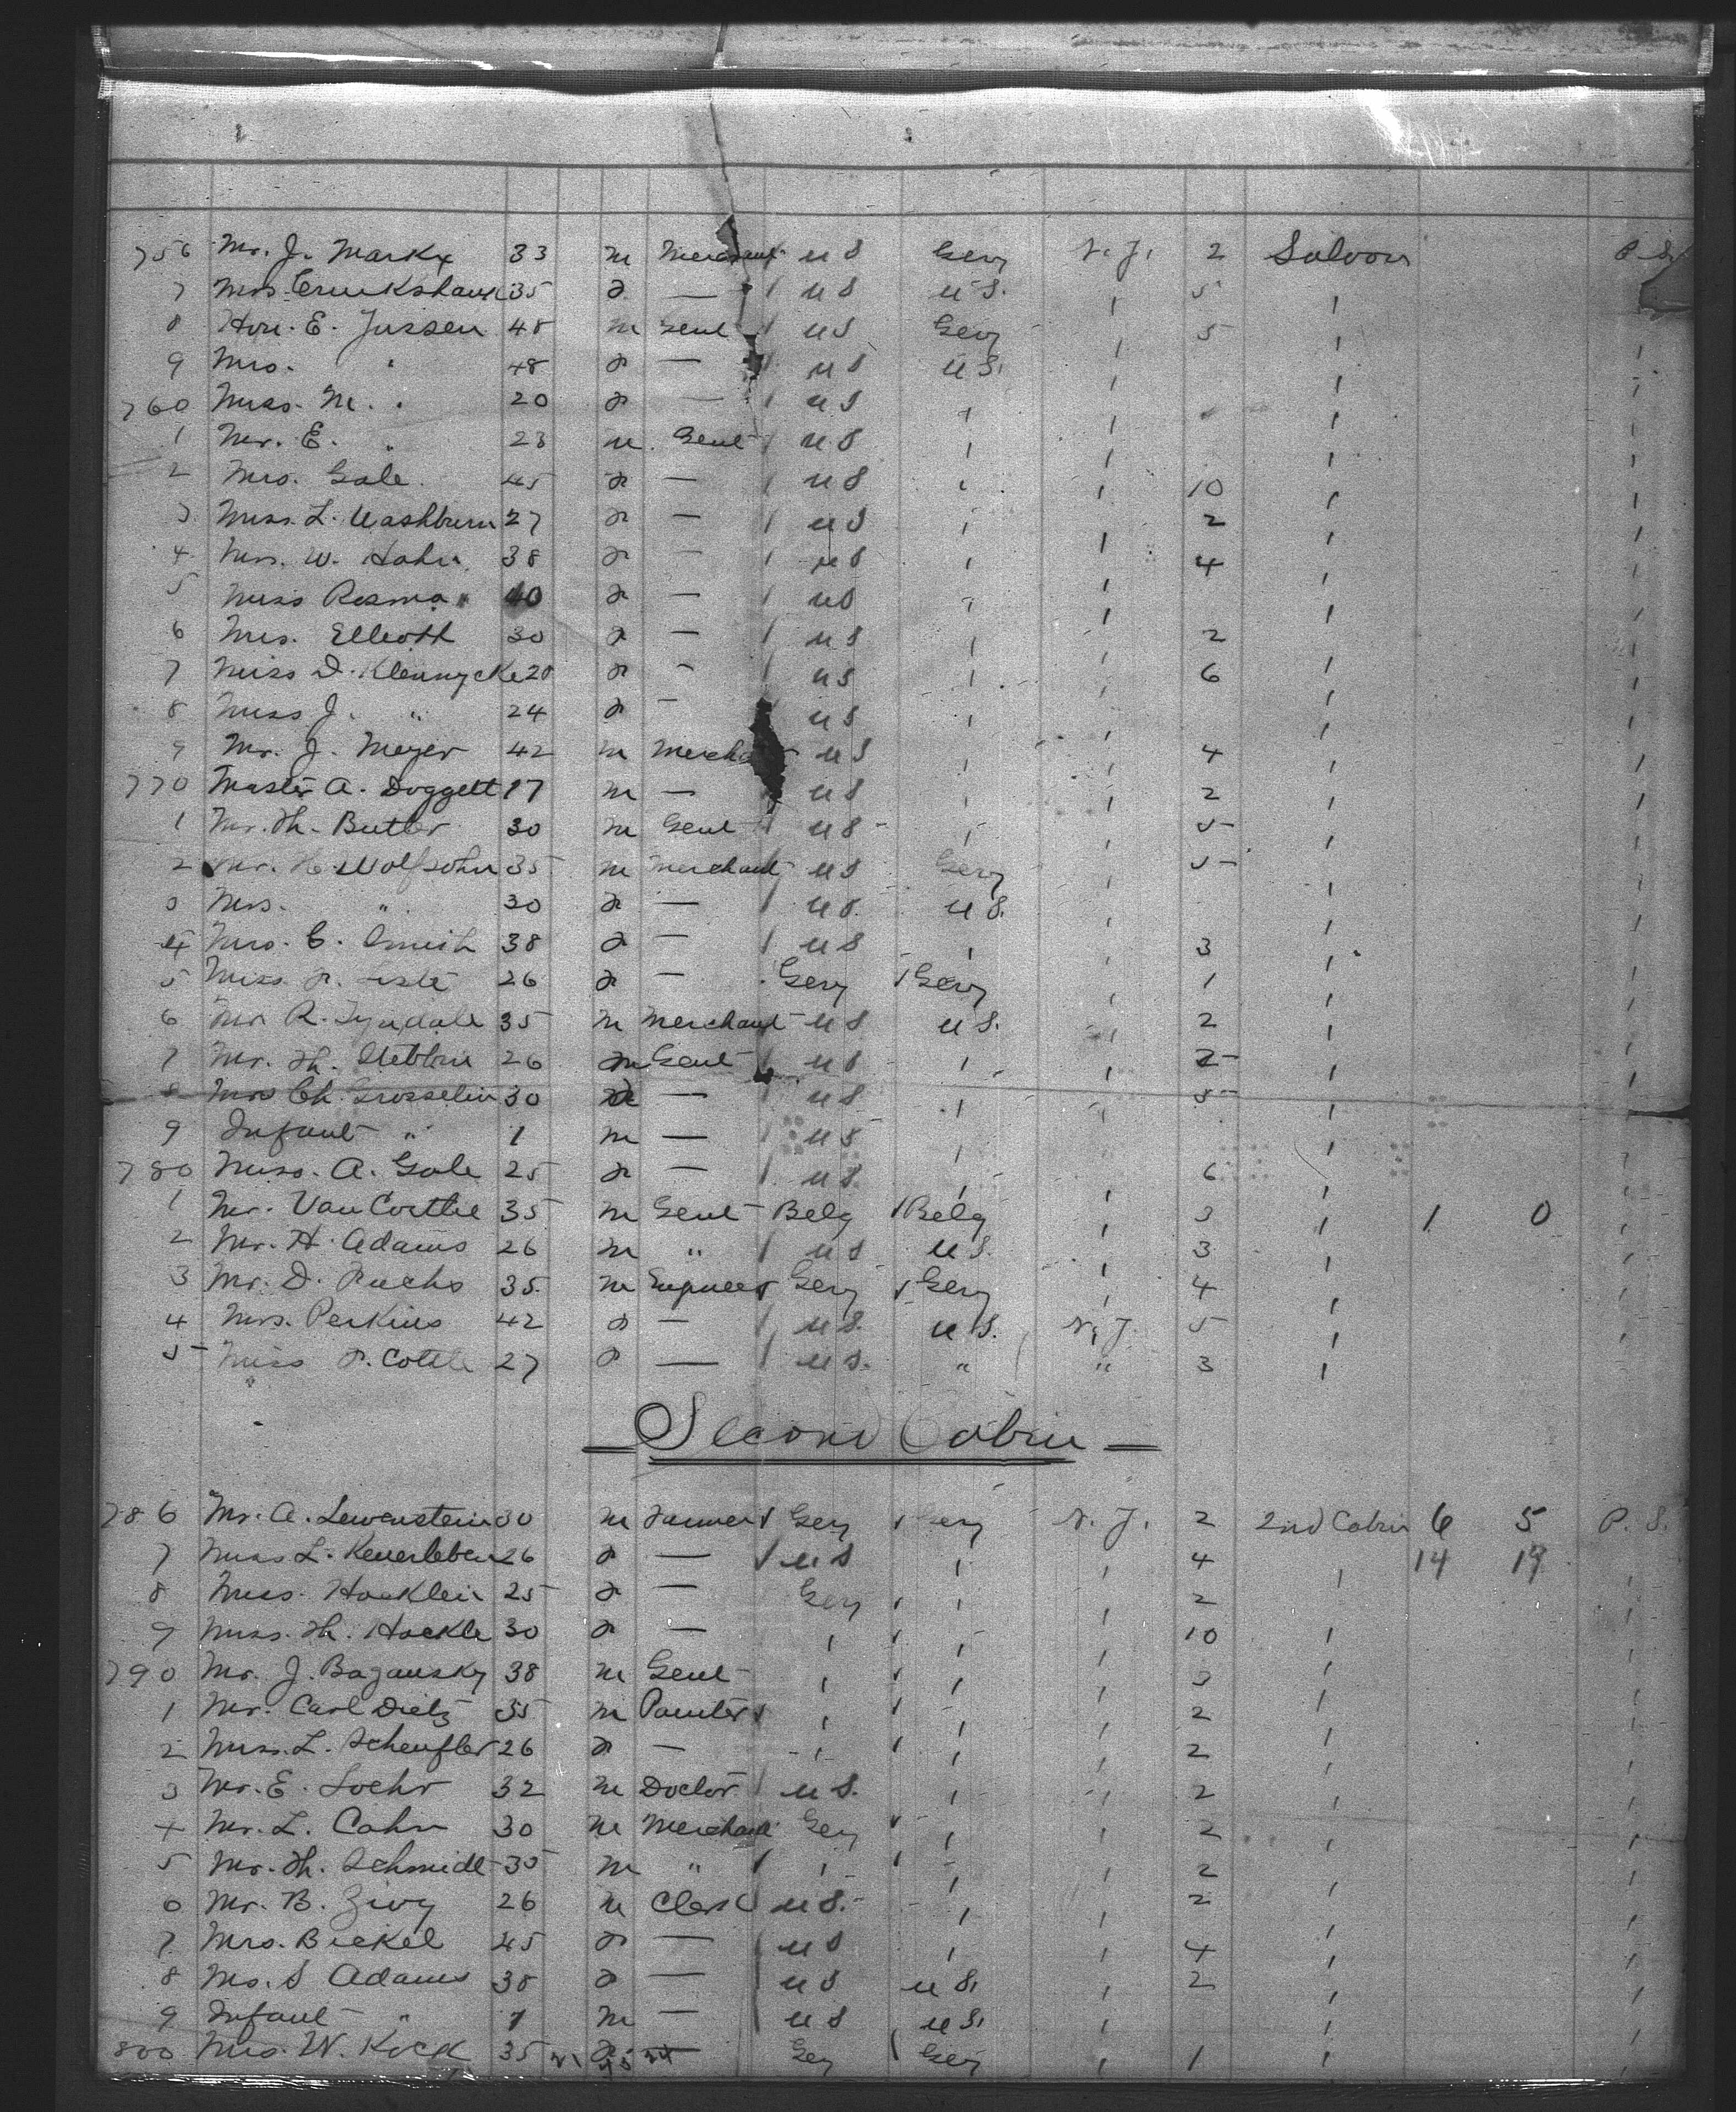 756 Mr. J. Markx 33 m Merchant / U S Gery N. J. 2 Saloon P. S.
7 Mrs. Cruikshank 35 f — / U S U S. ' 5 ' '
8 Hon. E. Jussen 48 m Gent / U S Gery ' 5 ' '
9 Mrs. " 48 f — / U S U S. ' ' '
760 Miss. M. " 20 f — / U S ' ' ' '
1 Mr. E. " 23 m. Gent / U S ' ' ' '
2 Mrs. Gale 45 f — / U S ' ' 10 ' '
3 Miss. L. Washburn 27 f — / U S ' ' 2 ' '
4 Mrs. W. Hahn 38 f — / U S ' ' 4 ' '
5 Miss Rosma " 10 f — / U S " ' ' '
6 Mrs. Elliott 30 f — / U S ' ' 2 ' '
7 Miss D. Klennycke 28 f - / U S ' ' 6 ' '
8 Miss J. " 24 f — U S ' ' ' '
9 Mr. J. Meyer 42 m Mercha U S ' ' 4 ' '
770 Master A. Doggett 17 m — U S ' ' 2 ' '
1 Mr. Th. Butler 30 m Gent / U S ' ' 5 ' '
2 Mr. H. Wolfsohn 35 m Merchant U S Gery ' 5 ' '
3 Mrs. " 30 f — / U S. U S. ' ' '
4 Mrs. C. Smith 38 f — / U S ' ' 3 ' '
5 Miss. F. 26 f — Gery / Gery ' 1 ' '
6 Mr. R. Tyndale 35 m Merchant U S U S. ' 2 ' '
7 Mr. Th. Stebbin 26 m Gent / U S ' ' 2 ' '
8 Mrs Ch. Grosselin 30 f — / U S ' ' 5 ' '
9 Infant " 1 m — / U S ' ' ' '
780 Miss. A. Gale 25 f — / U S. ' ' 6 ' '
1 Mr. Van Corthe 35 m Gent Belg / Belg ' 3 ' 1 0 '
2 Mr. H. Adams 26 m " / U S U S. ' 3 ' '
3 Mr. D. Fuchs 35. m Engineer Gery / Gery ' 4 ' '
4 Mrs. Perkins 42 f — / U S. U S. N. J. 5 ' '
5 Miss F. Cottle 27 f — / U S. " " 3 ' '
— Second Cabin —
786 Mr. A. Lewenstein 30 m Farmer / Gery / Gery N. J. 2 2nd Cabin 6 5 P. S.
7 Miss L. Keuerleber 26 f — / U S ' ' 4 ' 14 19 '
8 Miss. Hocklein 25 f — Gery / ' ' 2 ' '
9 Miss. Th. Hockle 30 f — ' / ' ' 10 ' '
790 Mr. J. Bagansky 38 m Gent ' / ' ' 3 ' '
1 Mr. Carl Dietz 35 m Painter / ' / ' ' 2 ' '
2 Miss. L. Scheufler 26 f — ' / ' ' 2 ' '
3 Mr. E. Loehr 32 m Doctor / U S. ' ' 2 ' '
4 Mr. L. Cahn 30 m Merchant Gery / ' ' 2 ' '
5 Mr. Th. Schmidt 35 m " / ' / ' ' 2 ' '
6 Mr. B. Zivy 26 m Clerk U S. ' ' 2 ' '
7 Mrs. Bickel 45 f — / U S ' ' 4 ' '
8 Mrs. S Adams 38 f — U S U S. ' 2 ' '
9 Infant " 1 m — U S U S. ' ' '
800 Mrs. W. Kock 35 f — Gery / Gery ' 1 ' '